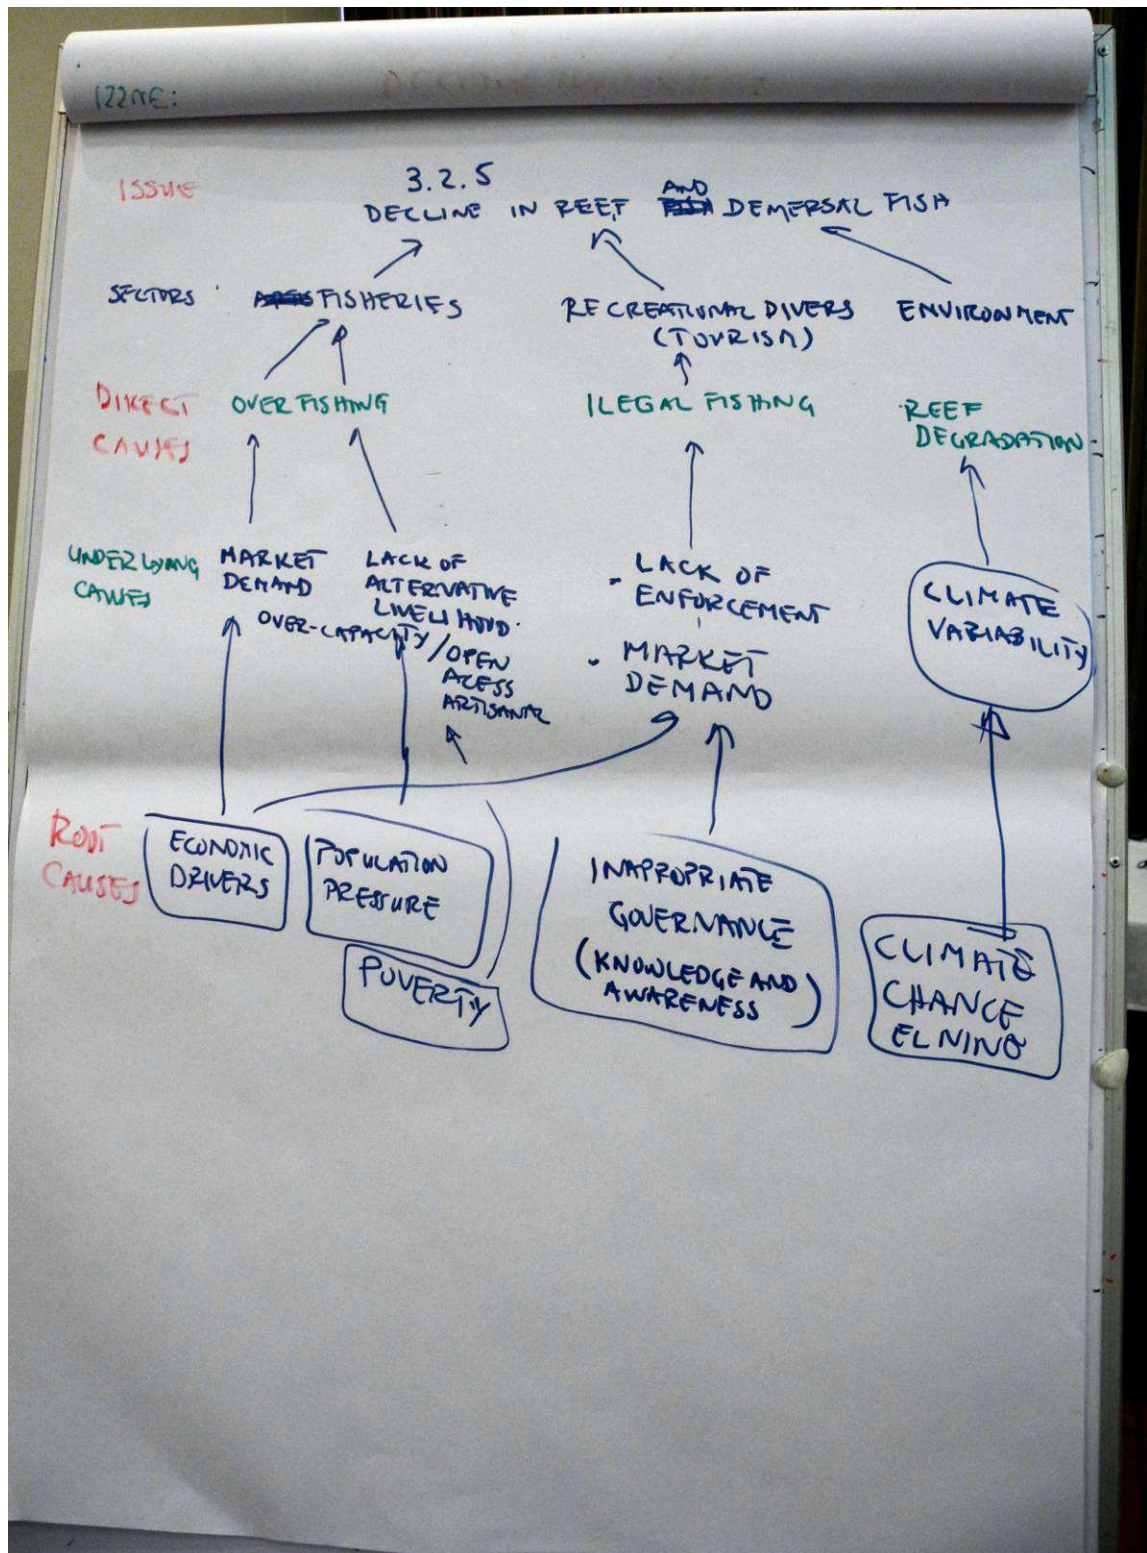 ISSUE:
ISSUE
3.2.5
AND
DECLINE IN REEF DEMERSAL FISH
SECTORS
FISHERIES
RECREATIONAL DIVERS
(TOURISM)
ENVIRONMENT
DIRECT
CAUSES
OVERFISHING
ILEGAL FISHING
REEF
DEGRADATION
UNDERLYANG
CAUSES
MARKET
DEMAND
LACK OF
ALTERNATIVE
LIVELIHOOD
OVER-CAPACITY/OPEN
ACESS
ARTISANAL
- LACK OF
ENFORCEMENT
- MARKET
DEMAND
CLIMATE
VARIABILITY
ROOT
CAUSES
ECONOMIC
DRIVERS
POPULATION
PRESSURE
POVERTY
INAPPROPRIATE
GOVERNANCE
(KNOWLEDGE AND
AWARENESS)
CLIMATE
CHANGE
EL NINO